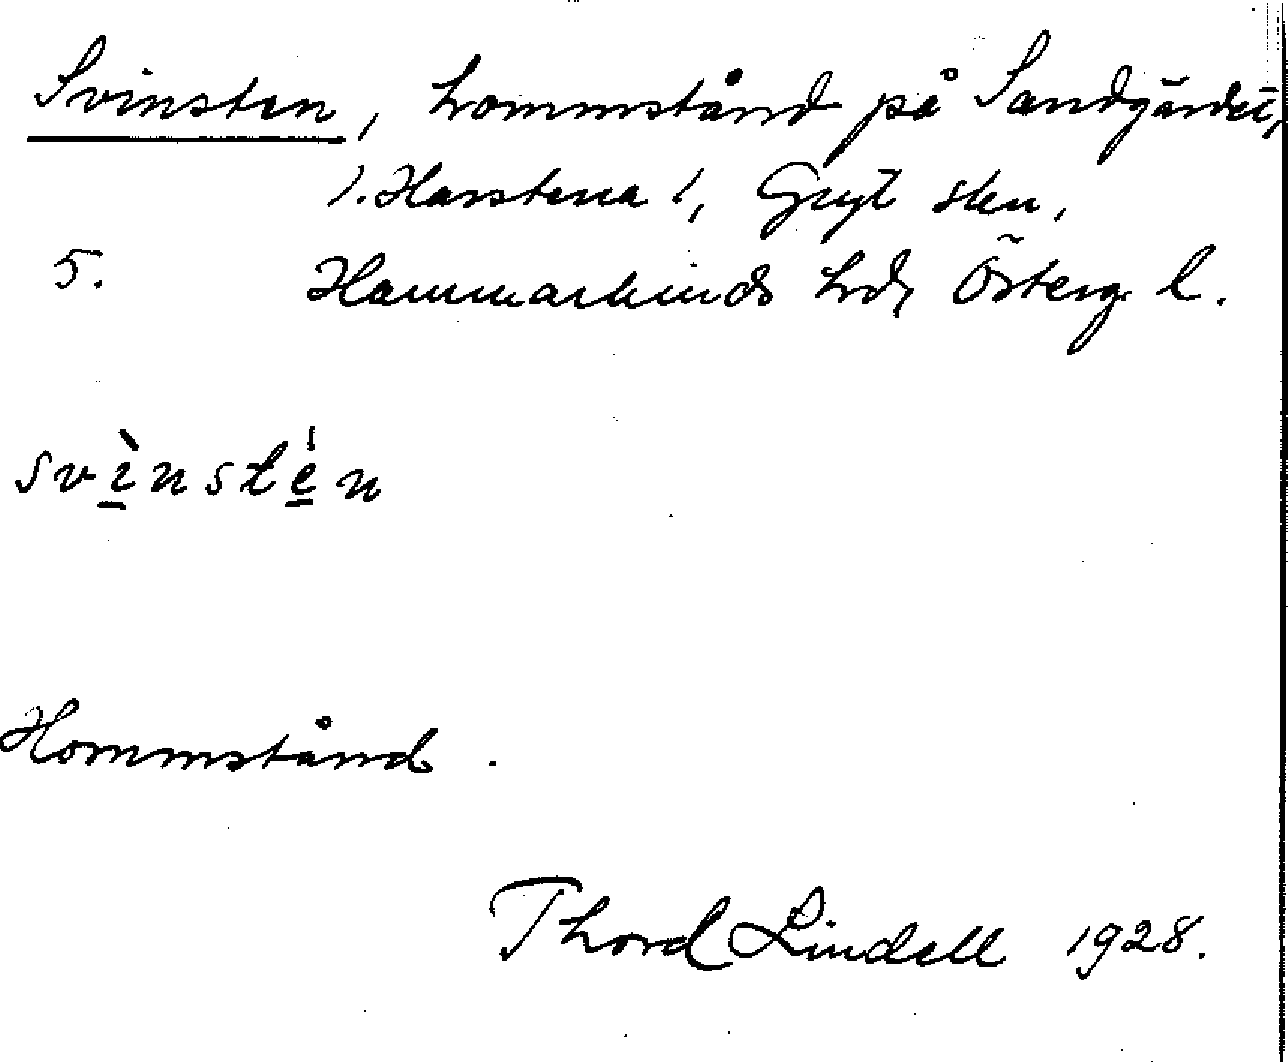 Svinsten, hommstånd på Sandgärdet,
1. Harstena 1, Gryt skn,
5. Hammarkinds hd, Österg. l.
svìnstén
Hommstånd.
Thord Lindell 1928.